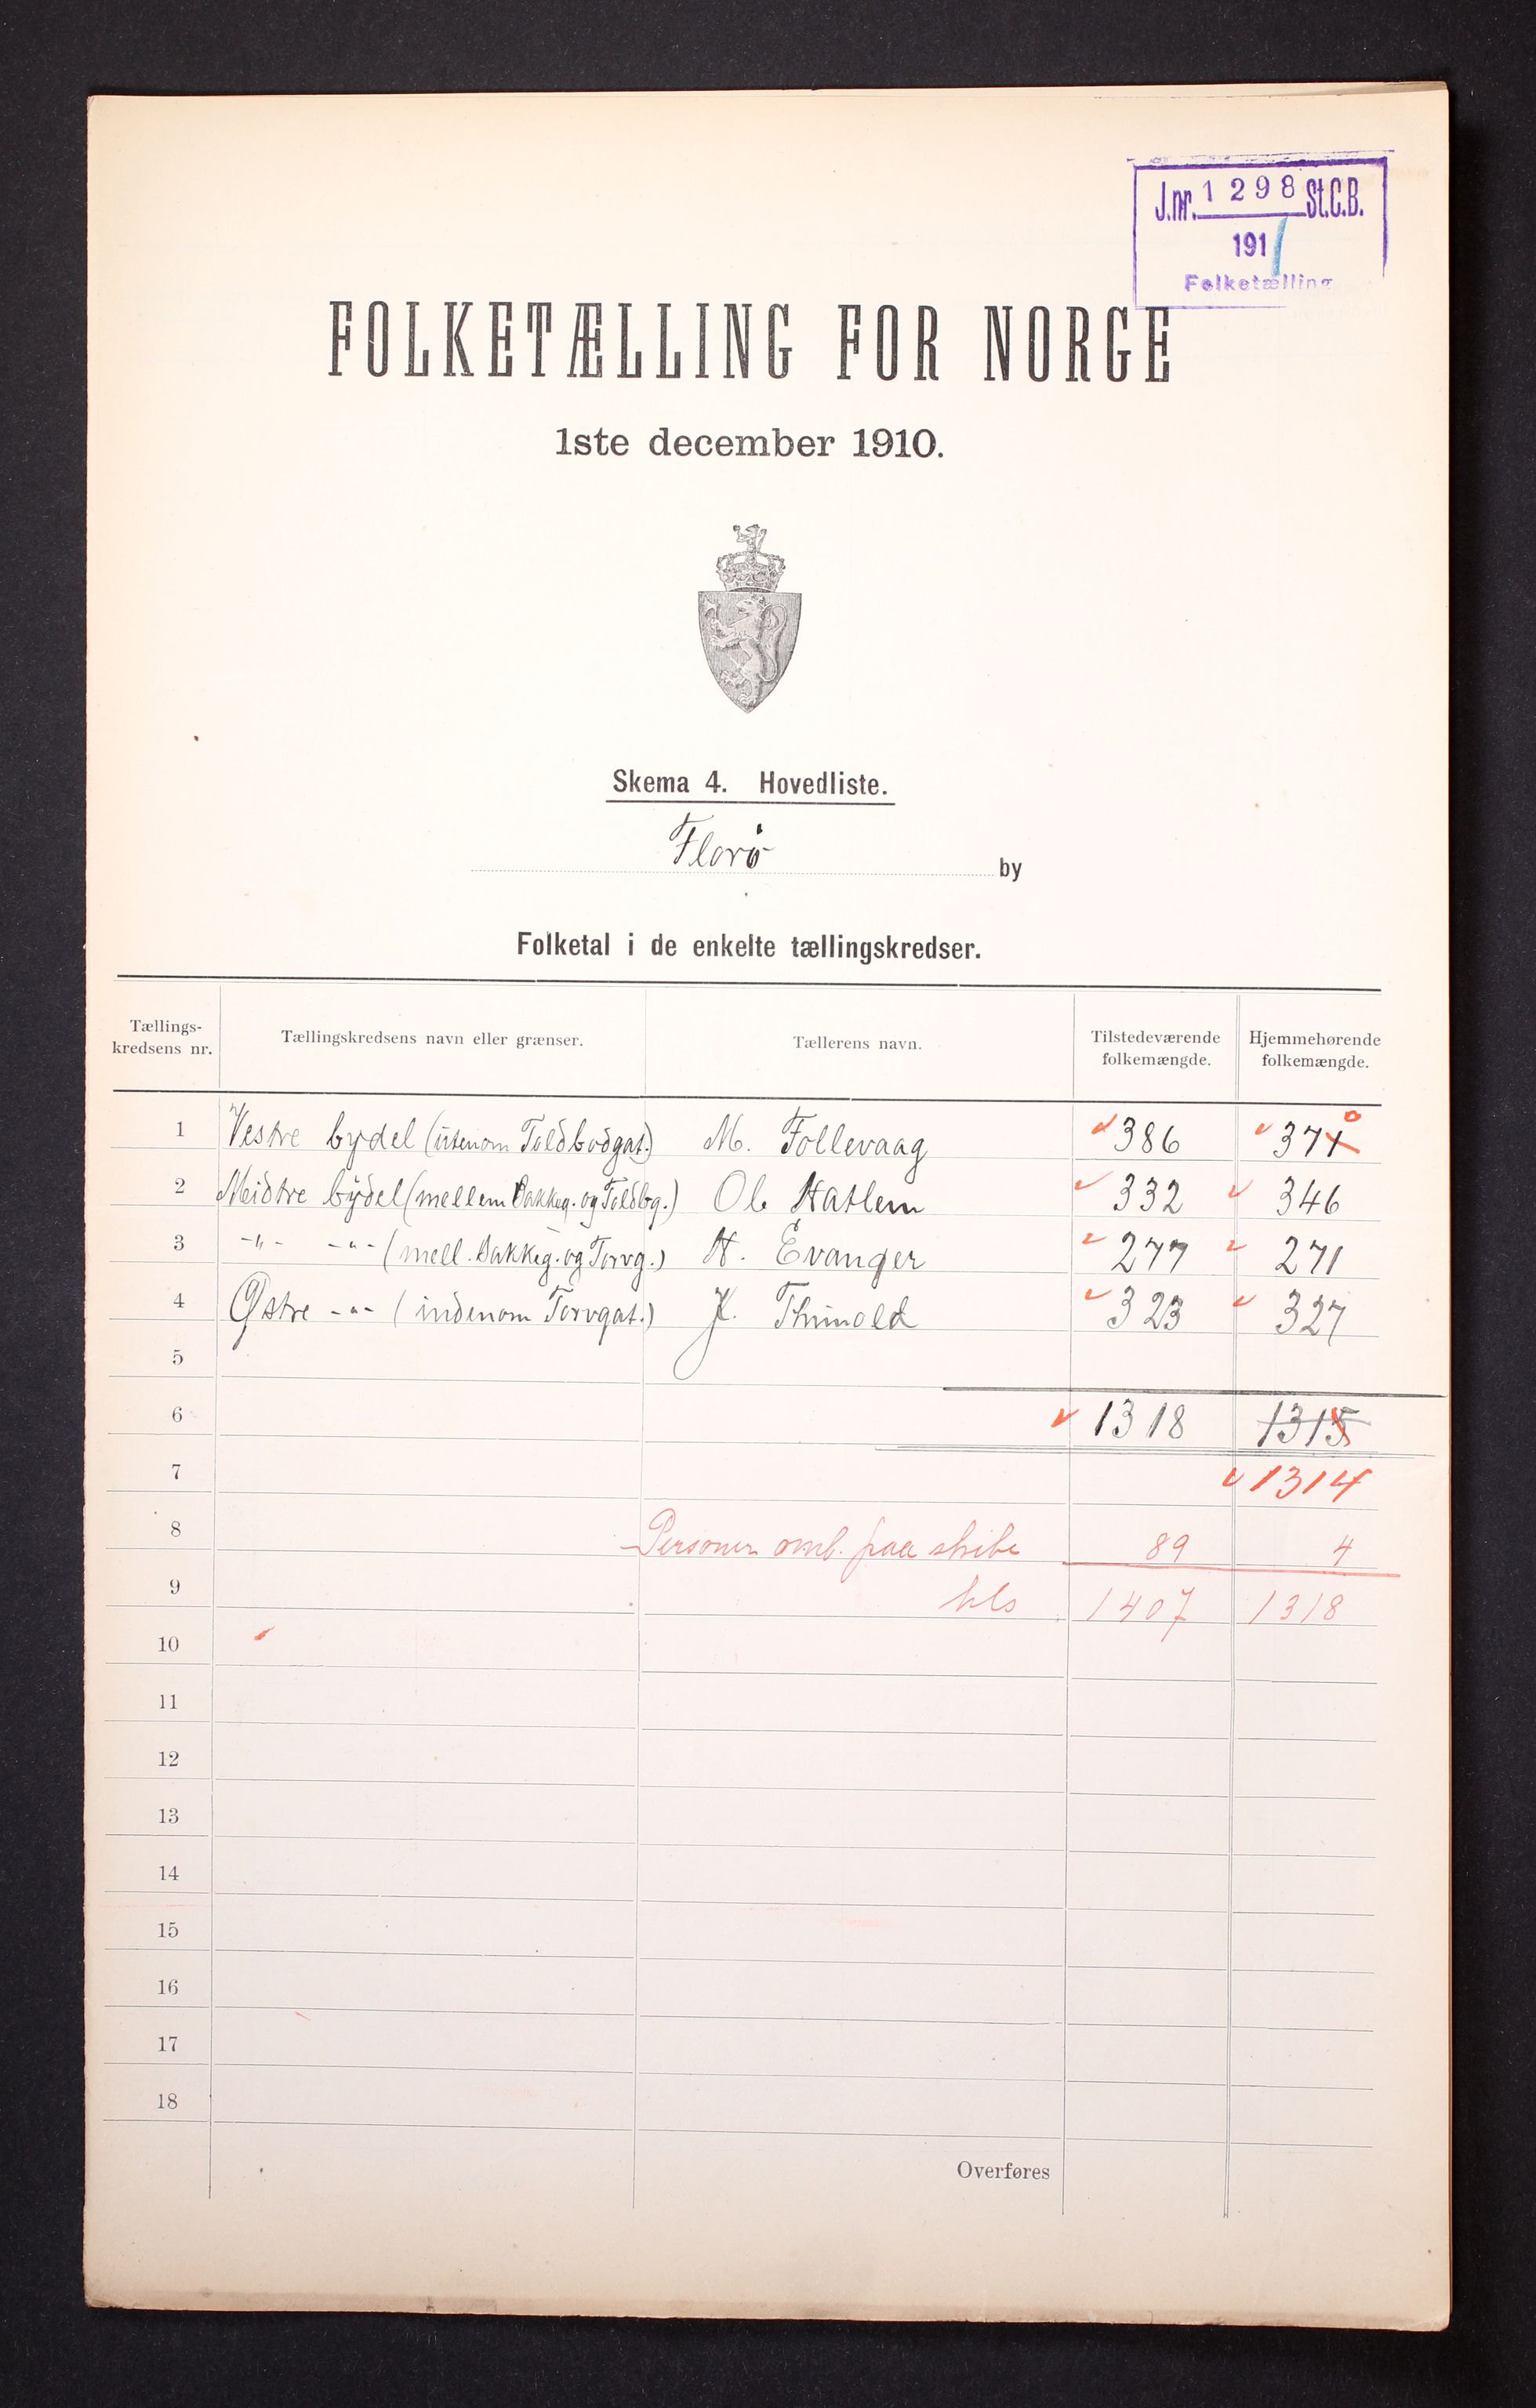 J.nr. 1298 St.C.B.
1911
Folketælling
FOLKETÆLLING FOR NORGE
1ste december 1910.
Skema 4. Hovedliste.
Florö by
Folketal i de enkelte tællingskredser.
Tællings-kredsens nr. Tællingskredsens navn eller grænser. Tællerens navn. Tilstedeværende folkemængde. Hjemmehørende folkemængde.
1 Vestre bydel (utenom Toldbodgat.) M. Follevaag 386 371 0
2 Meidtre bydel (mellem Bakkeg. og Toldbg.) Ol. Hatlem 332 346
3 -"- -"- (mell. Bakkeg. og Torvg.) H. Evanger 277 271
4 Østre -"- (indenom Torvgat.) K. 323 327
5
6 1318 1315
7 1314
8 Personer omb. paa skibe 89 4
9 tils 1407 1318
10
11
12
13
14
15
16
17
18
Overføres